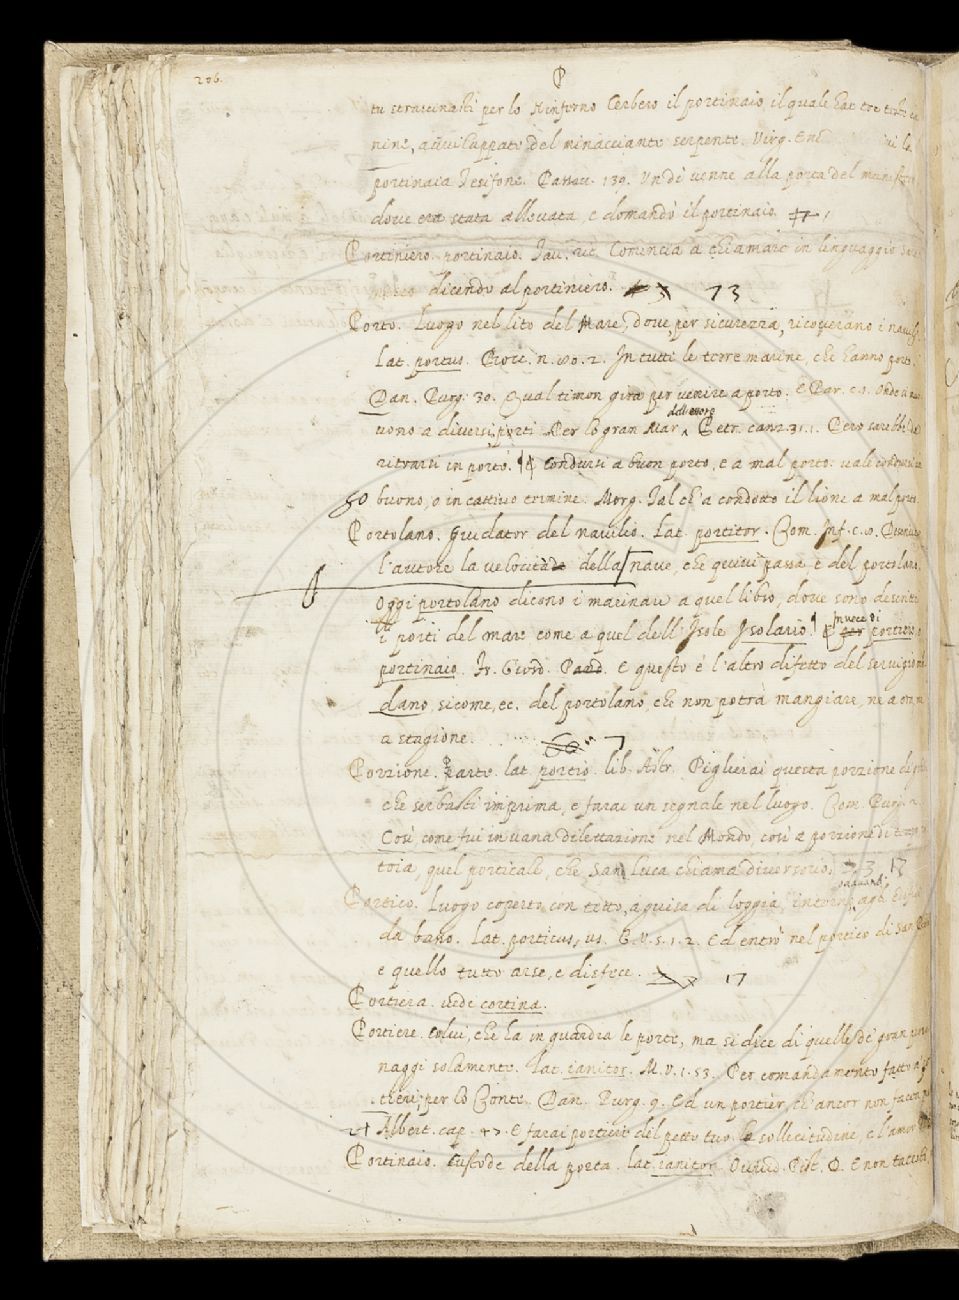 206.
P
tu strascinasti per lo Ninferno Cerbero il portinaio il quale hae tre teste ca
nine, aviluppato del minacciante serpente. Virg. Ene
portinaia Tesifone. Passau. 139. Un dì venne alla porta del
dove era stata allevata, e domandò il portinaio.
Portiniero. portinaio. Tau. rit. Comincia a chiamare in linguaggio
dicendo al portiniero. 73
Porto. Luogo nel lito del Mare, dove, per sicurezza, ricoverano i
Lat. portus. Croic. n. 80. 2. In tutti le terre marine, che hanno porto.
Dan. Purg. 30. Qual timon gira per venire a porto. E Par. c. 1. Onde si
uono a diversi porti Per lo gran Mar dell'essere Petr. canz. 31. 1. Pero sarebbe
ritrarsi in porto. ¶ Condursi a buon porto, e a mal porto: vale
50 buono, o in cattivo termine. Morg. Tal ch'a condotto il lione a mal porto.
Portolano. Guidator del navilio. Lat. portitor. Com. Inf. c. 8.
l'autore la velocitade della nave, che quivi passa, e del portolano.
Oggi portolano dicono i marinari a quel libro, dove sono descritti
i porti del mare come a quel dell'Isole Isolario. ¶ E per in vece di portiere
portinaio. Fr. Giord. Pred. E questo è l'altro difetto del servigio
dano, sicome, ec. del portolano, che non potrà mangiare, ne a ora, ne
a stagione. 7
Porzione. Parte. lat. portio. lib. Astr. Piglierai questa porzione di
che serbasti imprima, e farai un segnale nel luogo. Com. Purg.
Così come fui in vana dilettazione nel Mondo, così a porzione di
toia, quel porticale, che San Luca chiama diversorio. 17
Portico. Luogo coperto con tetto, a guisa di loggia, intorno, agli
da basso. Lat. porticus, us. G. V. 5. 1. 2. Ed entrò nel portico di San
e quello tutto arse, e disfece. 17
Portiera. vede cortina.
Portiere. Colui, che ha in guardia le porte, ma si dice di quelle de' gran perso
naggi solamente. Lat. ianitor. M. V. 1. 53. Per comandamento fatto a'
tieri, per lo Conte. Dan. Purg. 9. Ed un portier, ch'ancor non facea
Albert. cap. 47. E farai portiere del petto tuo la sollecitudine, e l'amor
Portinaio. Custode della porta. lat. ianitor. Ovvid. Pist. D. E non tacesti,